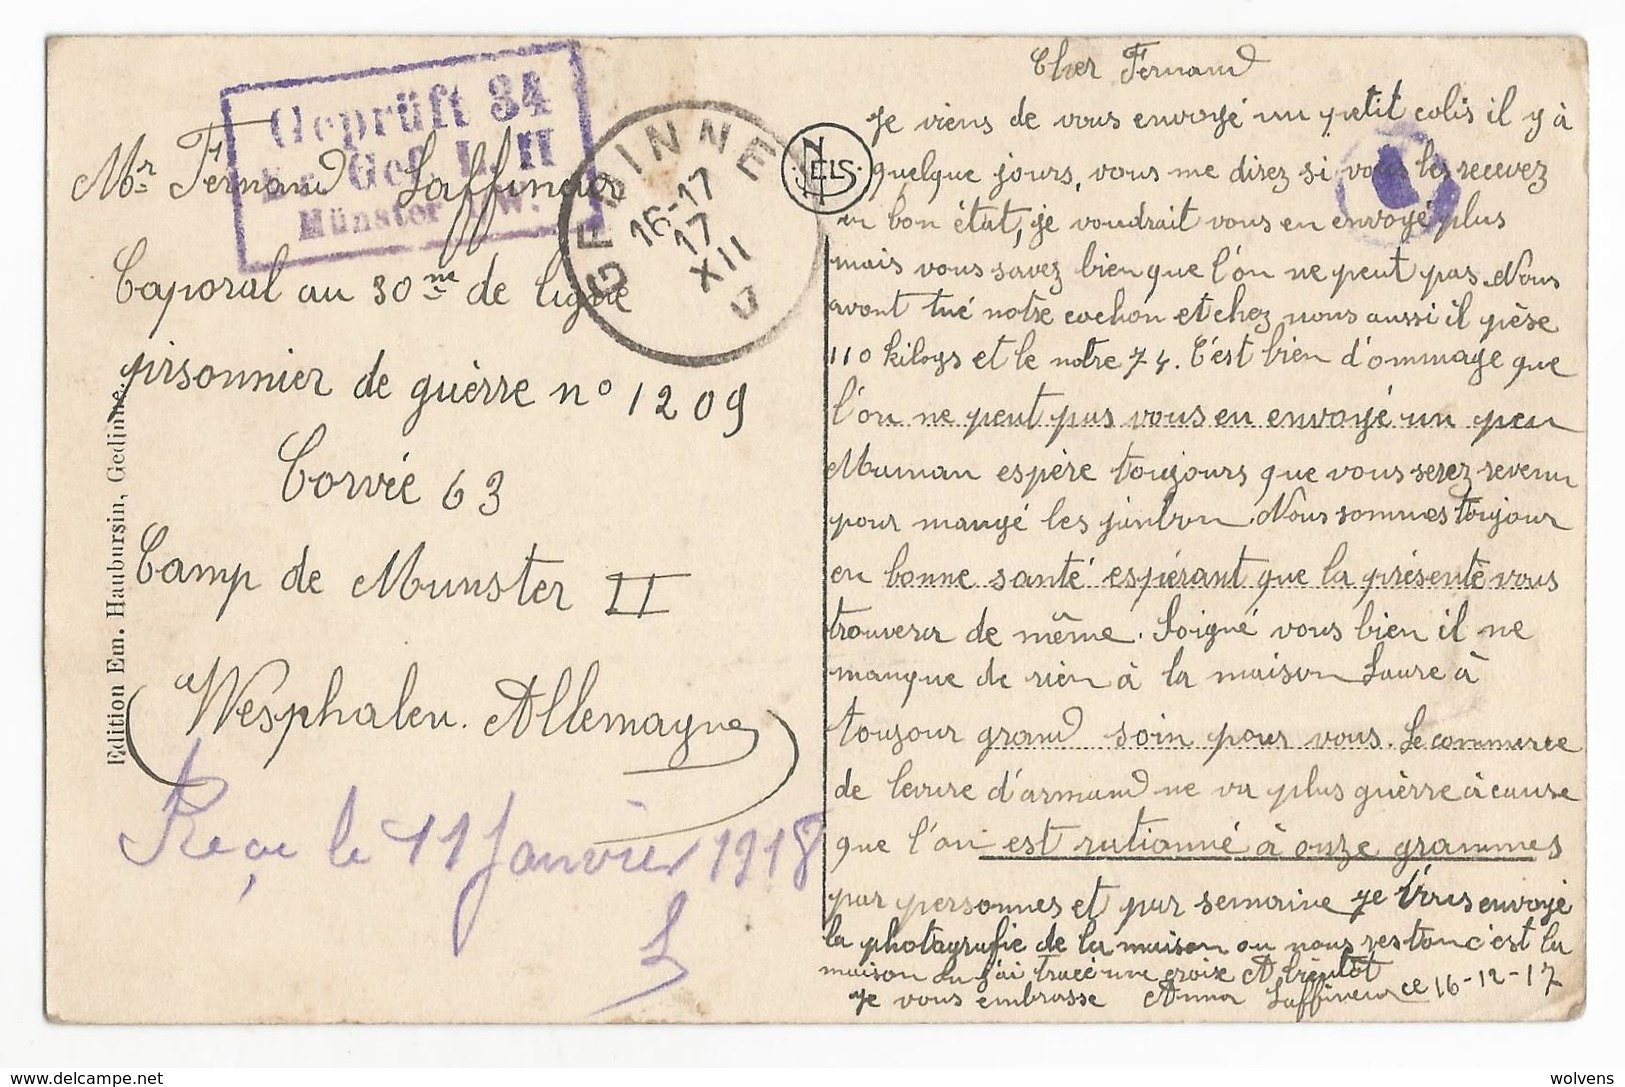 Geprüft 34
Gef. L. II
Münster i. W.
GEDINNE
16-17
17
XII
Mr Fernand Laffineur
Caporal au 30me de ligne
prisonnier de guèrre no 1209
Corvée 63
Camp de Munster II
(Wesphalen. Allemagne)
Reçu le 11 Janvier 1918
L
Edition Em. Haubursin, Gedinne.
NELS
Cher Fernand
Je viens de vous envoyé un petit colis il y à
quelque jours, vous me direz si vous les recevez
en bon état, je voudrait vous en envoyé plus
mais vous savez bien que l'on ne peut pas. Nous
avont tué notre cochon et chez nous aussi il pèse
110 kilogs et le notre 74. C'est bien d'ommage que
l'on ne peut pas vous en envoyé un peu
Maman espère toujours que vous serez revenu
pour mangé les jambon. Nous sommes toujour
en bonne santé espérant que la présente vous
trouvera de même. Soigné vous bien il ne
manque de rien à la maison Laure à
toujour grand soin pour vous. Le commerce
de levure d'armand ne va plus guèrre à cause
que l'on est rationné à onze grammes
par personnes et par semaine je vous envoyé
la photografie de la maison ou nous restons c'est la
maison ou j'ai tracé une croix A bientôt
je vous embrasse Anna Laffineur ce 16-12-17
delcampe.net
wolvens